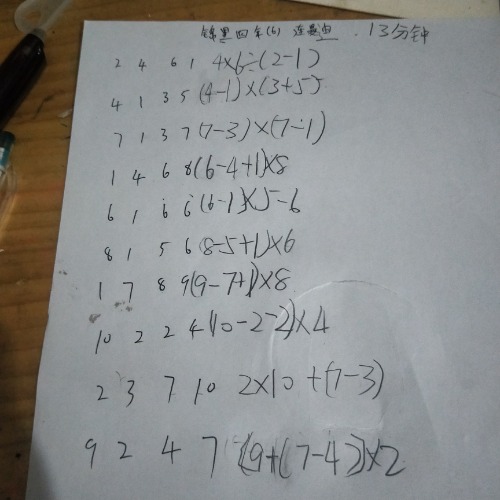 锦里四年(6) 连晨白 . 13分钟
2 4 6 1 4×6÷(2-1)
4 1 3 5 (4-1)×(3+5)
7 1 3 7 (7-3)×(7-1)
1 4 6 8 (6-4+1)×8
6 1 6 6 (6-1)×5-6
8 1 5 6 (8-5+1)×6
1 7 8 9 (9-7+1)×8
10 2 2 4 (10-2-2)×4
2 3 7 10 2×10+(7-3)
9 2 4 7 (9+(7-4))×2